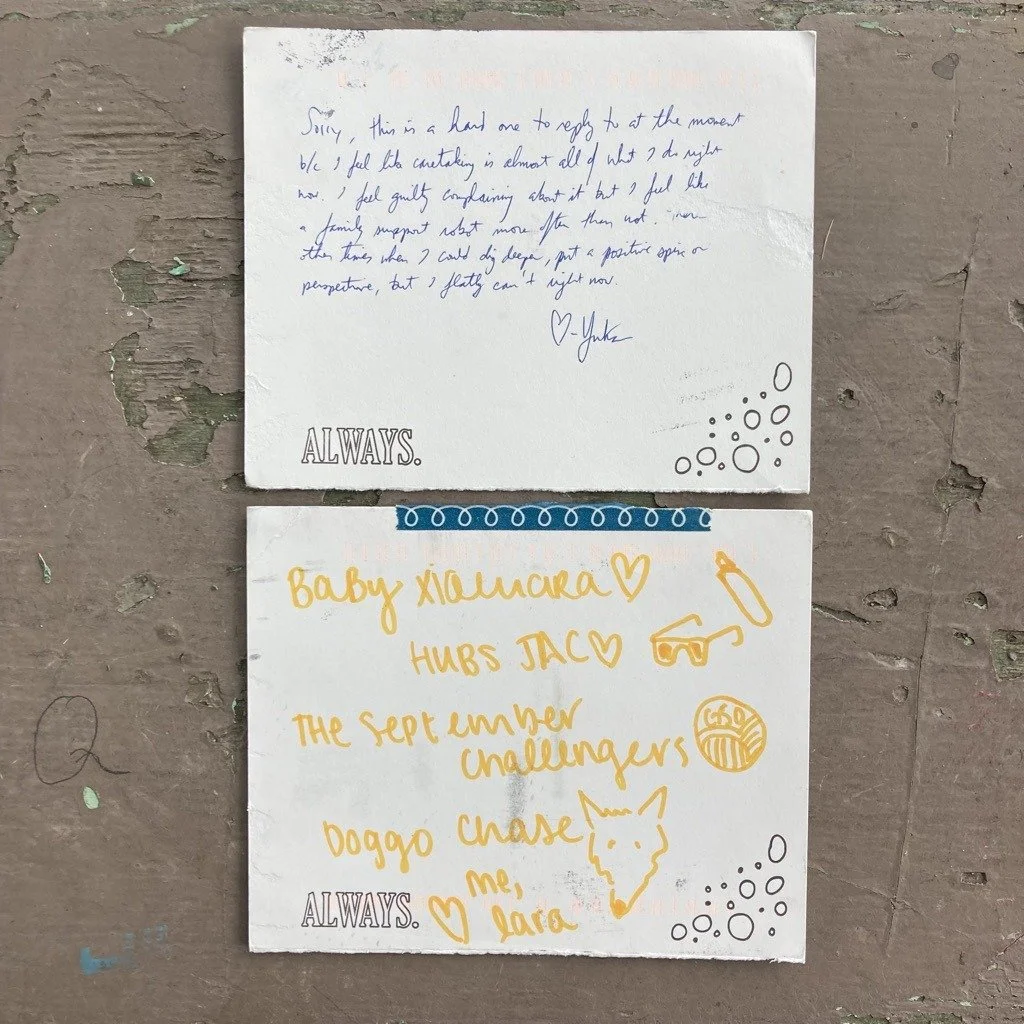 Sorry, this is a hard one to reply to at the moment
b/c I feel like caretaking is almost all of what I do right
now. I feel guilty complaining about it but I feel like
a family support robot more often than not.
other times when I could dig deeper, put a positive spin or
perspective, but I flatly can't right now.
♡-
ALWAYS.
BaBy ♡
HUBS JAC♡
THE September
challengers
Doggo Chase
me,
ALWAYS. ♡ lara